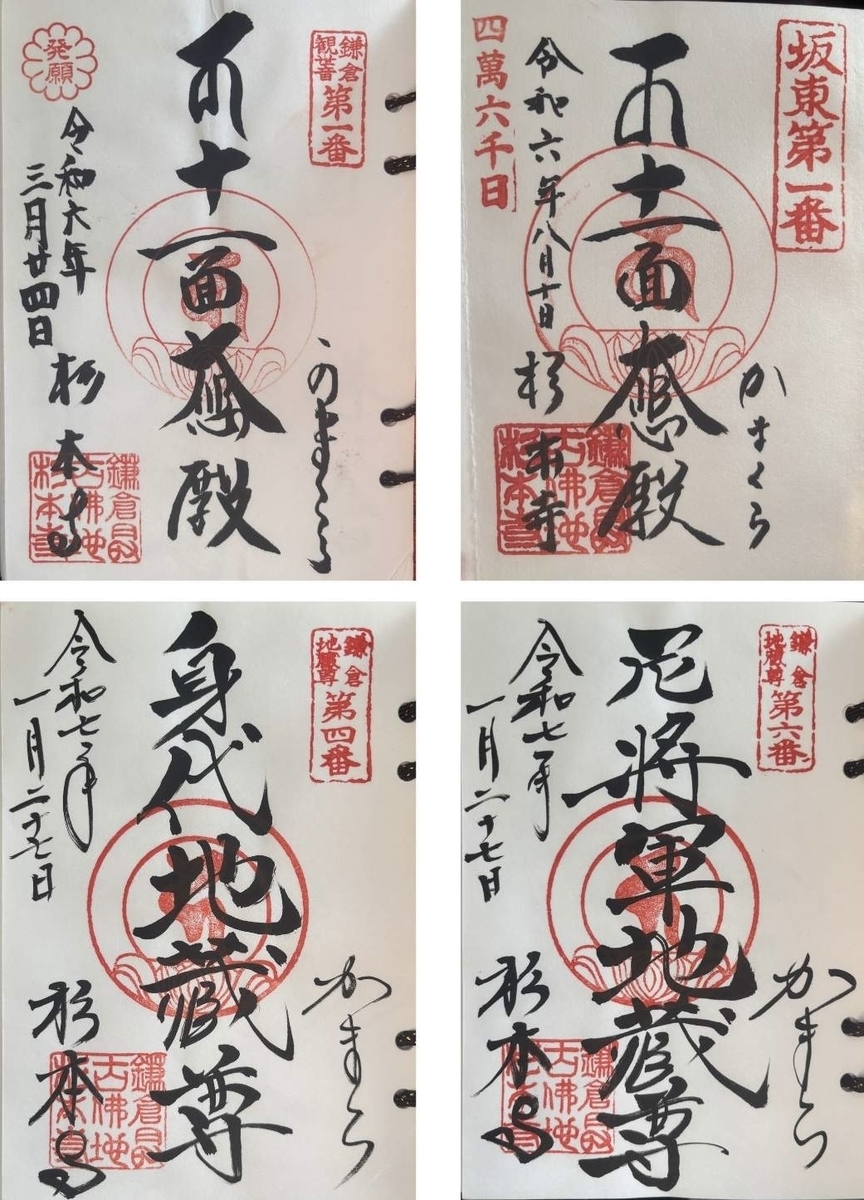 鎌倉
観世音
第一番
十一面大悲殿
かまくら
発願
令和六年
三月廿四日
杉本寺
鎌倉最
古佛地
杉本寺
坂東第一番
十一面大悲殿
かまくら
四萬六千日
令和六年八月十日
杉本寺
鎌倉最
古佛地
杉本寺
鎌倉
地蔵尊
第四番
身代地蔵尊
かまくら
令和七年
一月二十七日
杉本寺
鎌倉最
古佛地
杉本寺
鎌倉
地蔵尊
第六番
尼将軍地蔵尊
かまくら
令和七年
一月二十七日
杉本寺
鎌倉最
古佛地
杉本寺